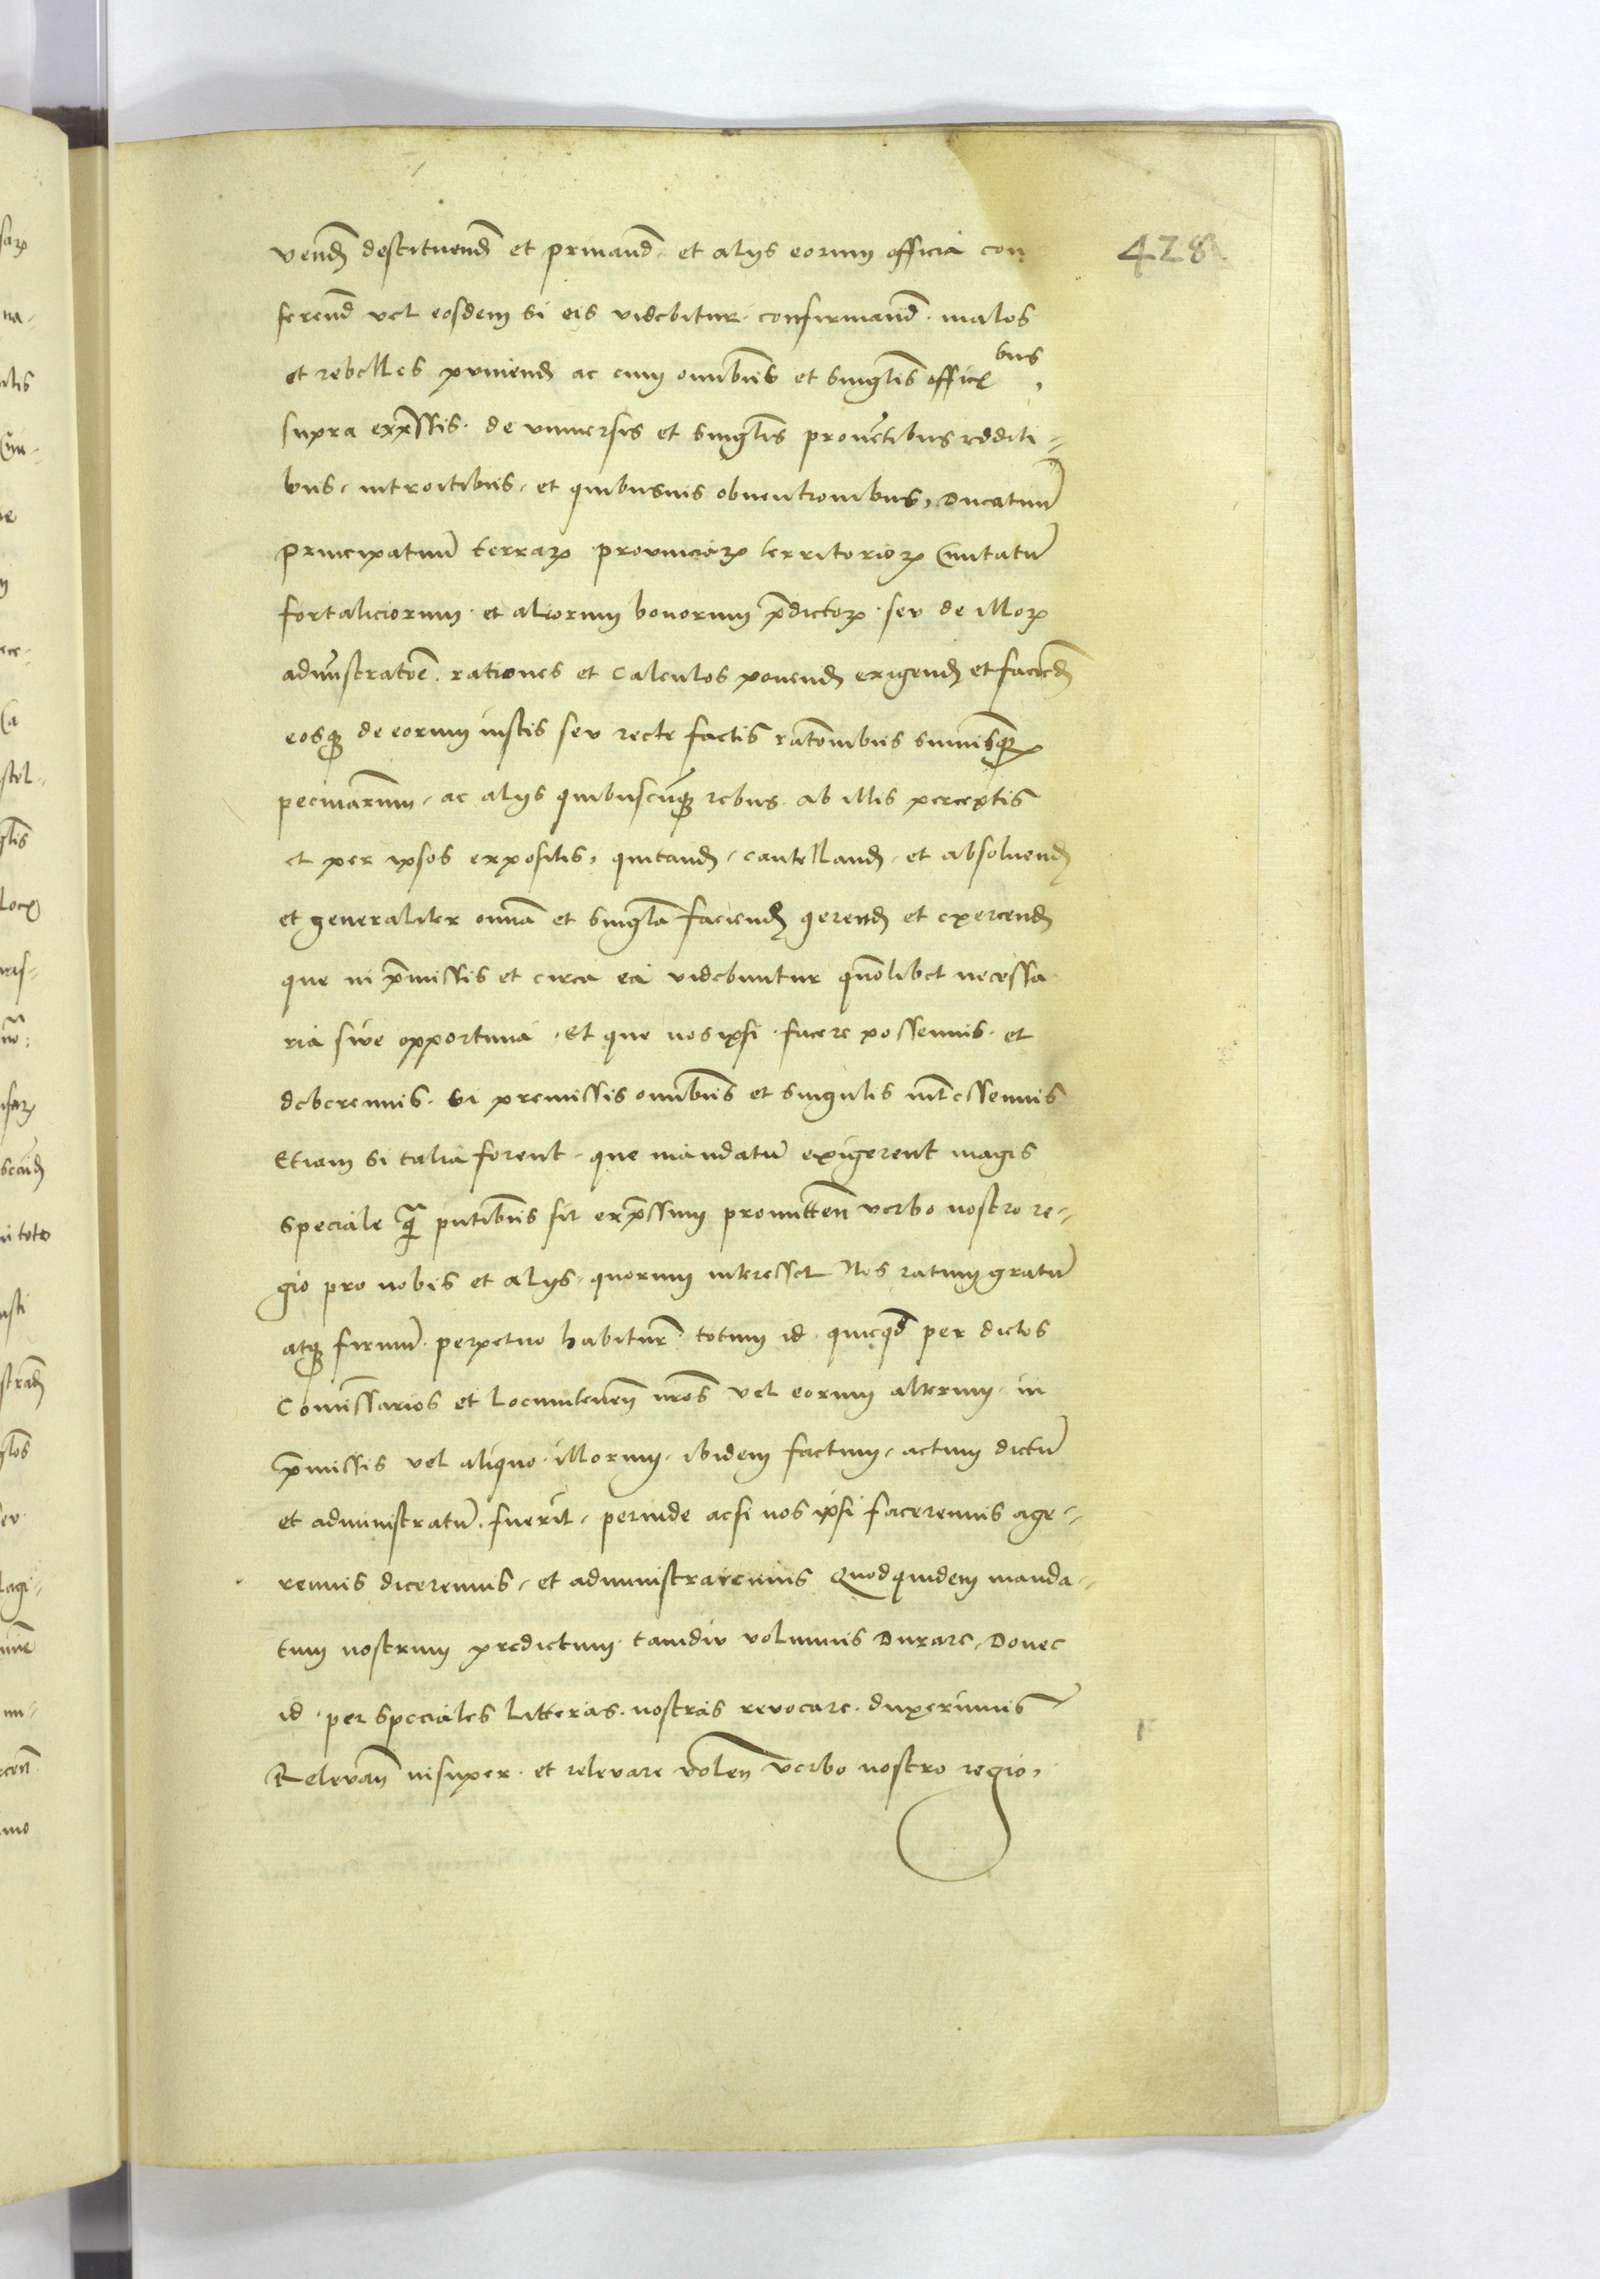 428
vend destituend et priuand et alijs eorum officia con
ferend vel eosdem si eis videbitur confirmand malos
et rebelles puniend ac cum omnibus et singlis offic bus
supra expressis de vniuersis et singlis prouentibus redditi-
bus introitibus et quibusuis obuentionibus, Ducatuum
Principatuum terrar prouinciar territorior Ciuitatum
fortaliciorum et aliorum bonorum predictor seu de illor
administratoe rationes et calculos ponend exigend et faciend
eosq de eorum iustis seu recte factis rationibus summisq
pecuniarum ac alijs quibuscumq rebus ab illis perceptis
et per ipsos expositis, quitand cautelland et absoluend
et generaliter omnia et singla faciend gerend et exercend
que in premissis et circa ea videbuntur quomlibet necessa
ria siue opportuna Et que nos ipsi facere possemus et
deberemus si premissis omnibus et singulis interessemus
Etiam si talia forent que mandatum exigerent magis
speciale q pntibus sit expressum promitten verbo nostro re-
gio pro nobis et alijs quorum interesset Nos ratum gratum
atq firmum perpetuo habitur totum id quicqd per dictos
Comissarios et Locumtenen nros vel eorum alterum in
premissis vel aliquo illorum ibidem factum actum dictum
et administratum fuerit perinde acsi nos ipsi faceremus age-
remus diceremus et administraremus Quodquidem manda-
tum nostrum predictum tamdiu volumus Durare Donec
id per speciales litteras nostras revocare duxerimus
Relevan insuper et relevare volen verbo nostro regio,